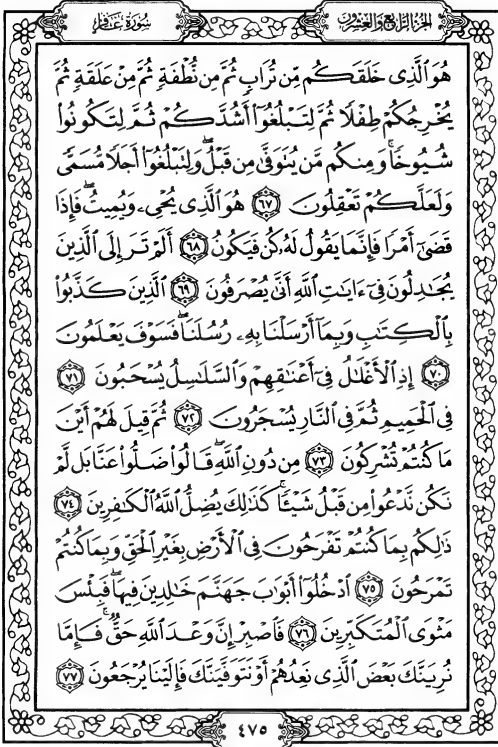 الجزء الرابع والعشرون
سورة غافر
هُوَ ٱلَّذِى خَلَقَكُم مِّن تُرَابٍ ثُمَّ مِن نُّطْفَةٍ ثُمَّ مِنْ عَلَقَةٍ ثُمَّ
يُخْرِجُكُمْ طِفْلًا ثُمَّ لِتَبْلُغُوٓا۟ أَشُدَّكُمْ ثُمَّ لِتَكُونُوا۟
شُيُوخًا ۚ وَمِنكُم مَّن يُتَوَفَّىٰ مِن قَبْلُ ۖ وَلِتَبْلُغُوٓا۟ أَجَلًا مُّسَمًّى
وَلَعَلَّكُمْ تَعْقِلُونَ ﴿٦٧﴾ هُوَ ٱلَّذِى يُحْىِۦ وَيُمِيتُ ۖ فَإِذَا
قَضَىٰٓ أَمْرًا فَإِنَّمَا يَقُولُ لَهُۥ كُن فَيَكُونُ ﴿٦٨﴾ أَلَمْ تَرَ إِلَى ٱلَّذِينَ
يُجَٰدِلُونَ فِىٓ ءَايَٰتِ ٱللَّهِ أَنَّىٰ يُصْرَفُونَ ﴿٦٩﴾ ٱلَّذِينَ كَذَّبُوا۟
بِٱلْكِتَٰبِ وَبِمَآ أَرْسَلْنَا بِهِۦ رُسُلَنَا ۖ فَسَوْفَ يَعْلَمُونَ
﴿٧٠﴾ إِذِ ٱلْأَغْلَٰلُ فِىٓ أَعْنَٰقِهِمْ وَٱلسَّلَٰسِلُ يُسْحَبُونَ ﴿٧١﴾
فِى ٱلْحَمِيمِ ثُمَّ فِى ٱلنَّارِ يُسْجَرُونَ ﴿٧٢﴾ ثُمَّ قِيلَ لَهُمْ أَيْنَ
مَا كُنتُمْ تُشْرِكُونَ ﴿٧٣﴾ مِن دُونِ ٱللَّهِ ۖ قَالُوا۟ ضَلُّوا۟ عَنَّا بَل لَّمْ
نَكُن نَّدْعُوا۟ مِن قَبْلُ شَيْـًٔا ۚ كَذَٰلِكَ يُضِلُّ ٱللَّهُ ٱلْكَٰفِرِينَ ﴿٧٤﴾
ذَٰلِكُم بِمَا كُنتُمْ تَفْرَحُونَ فِى ٱلْأَرْضِ بِغَيْرِ ٱلْحَقِّ وَبِمَا كُنتُمْ
تَمْرَحُونَ ﴿٧٥﴾ ٱدْخُلُوٓا۟ أَبْوَٰبَ جَهَنَّمَ خَٰلِدِينَ فِيهَا ۖ فَبِئْسَ
مَثْوَى ٱلْمُتَكَبِّرِينَ ﴿٧٦﴾ فَٱصْبِرْ إِنَّ وَعْدَ ٱللَّهِ حَقٌّ ۚ فَإِمَّا
نُرِيَنَّكَ بَعْضَ ٱلَّذِى نَعِدُهُمْ أَوْ نَتَوَفَّيَنَّكَ فَإِلَيْنَا يُرْجَعُونَ ﴿٧٧﴾
٤٧٥